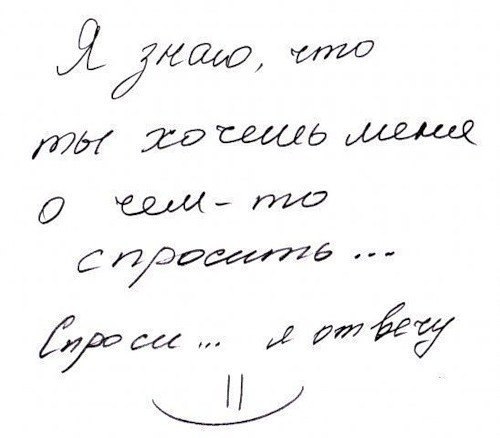 Я знаю, что
ты хочешь меня
о чем-то
спросить...
Спроси... я отвечу